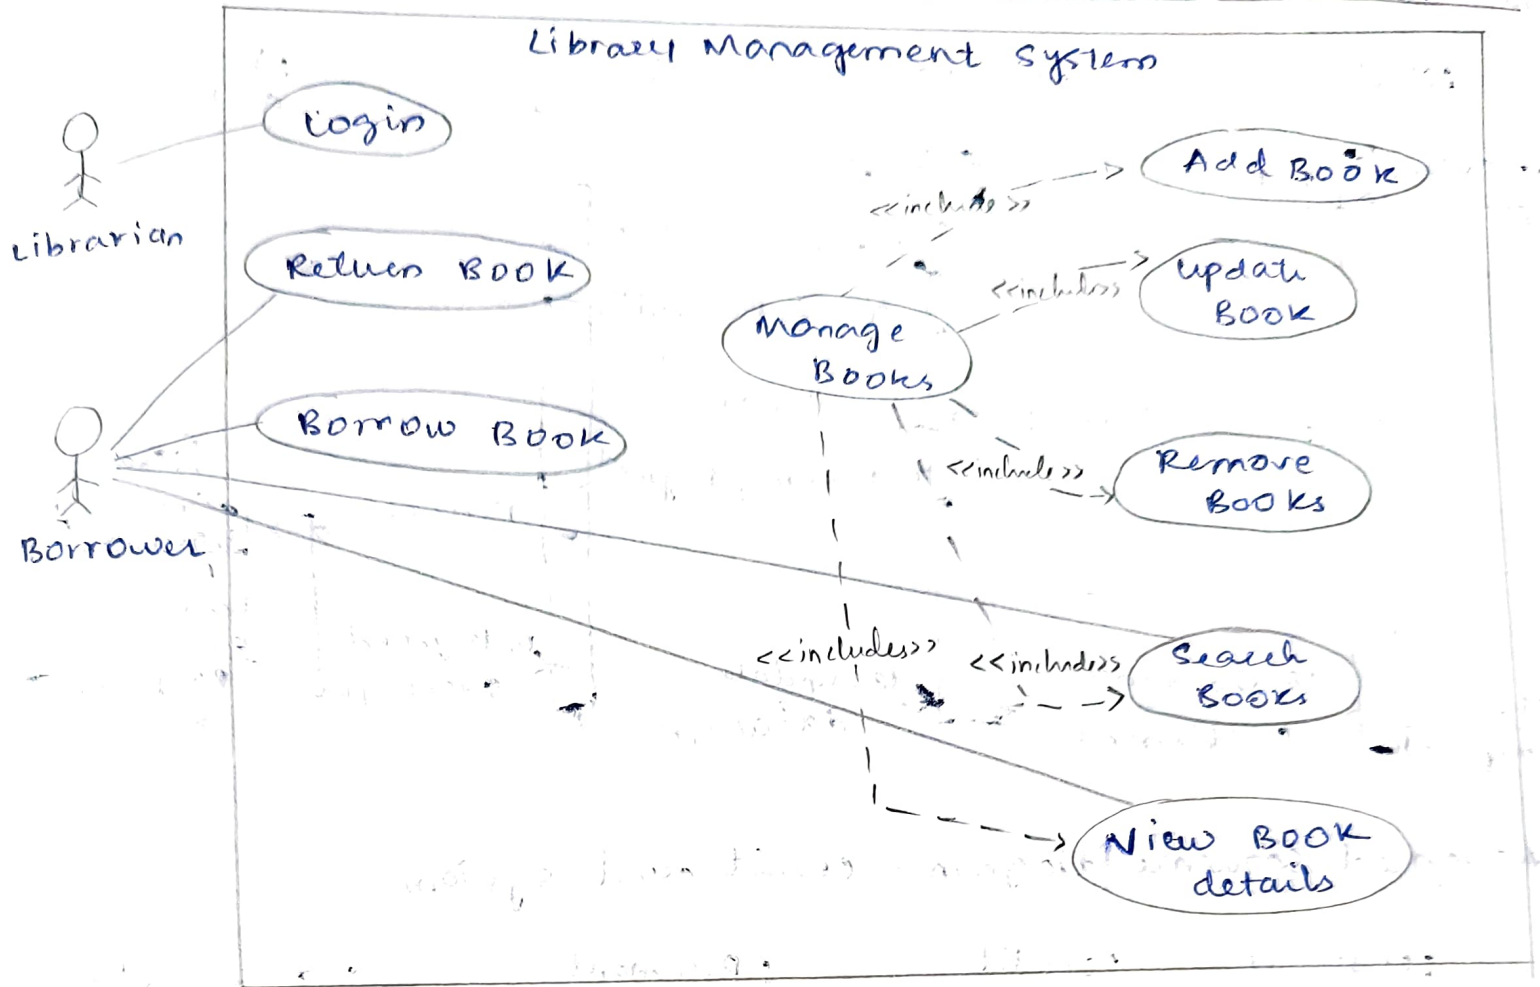 Library Management System
Login
Librarian
Return Book
Borrow Book
Borrower
Manage
Books
<<includes>>
Add Book
<<includes>>
Update
Book
<<include>>
Remove
Books
<<includes>>
<<includes>>
Search
Books
View Book
details